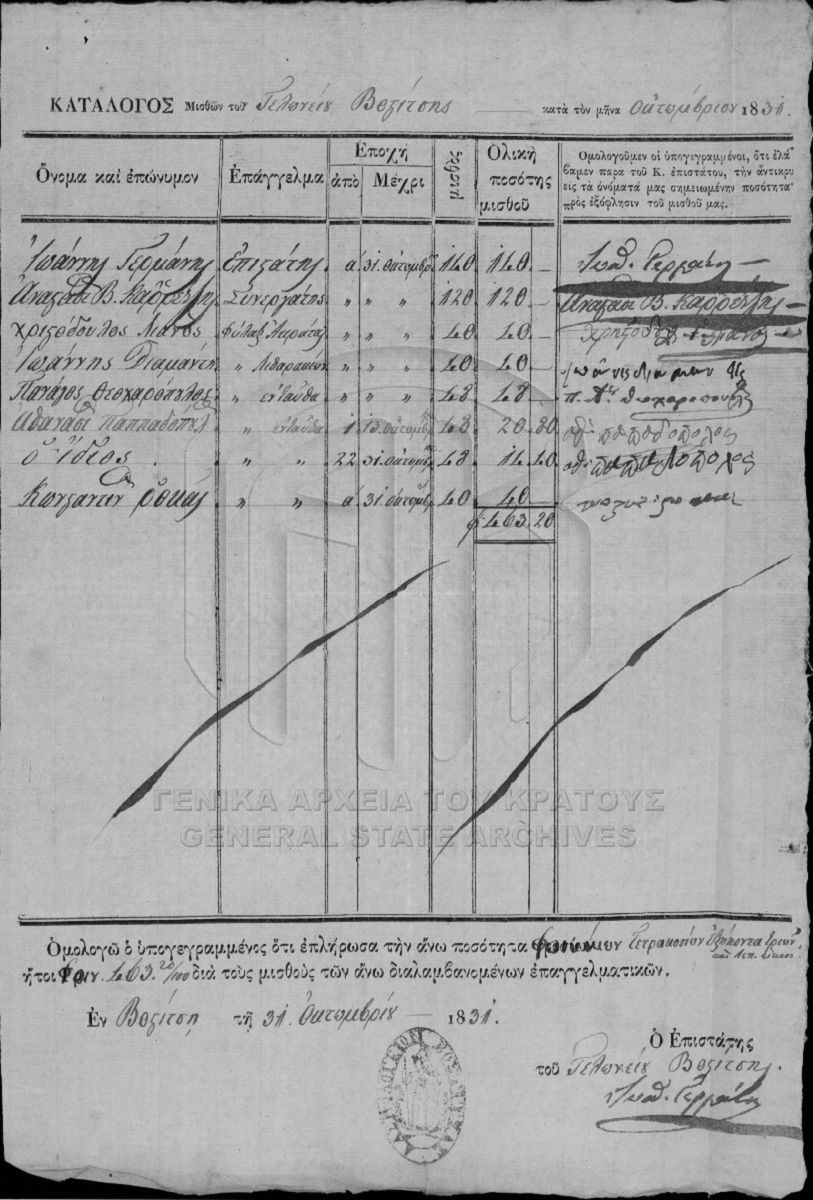 ΚΑΤΑΛΟΓΟΣ Μισθῶν τοῦ Τελωνείου Βοςίτσης κατὰ τὸν μῆνα Ὀκτώμβριον 1831.
Ὄνομα καὶ ἐπώνυμον Ἐπάγγελμα Ἐποχὴ ἀπὸ Μέχρι μισθὸς Ὁλικὴ ποσότης μισθοῦ Ὁμολογοῦμεν οἱ ὑπογεγραμμένοι, ὅτι ἐλά-
βαμεν παρὰ τοῦ Κ. ἐπιστάτου, τὴν ἀντικρυ
εἰς τὰ ὀνόματά μας σημειωμένην ποσότητα
πρὸς ἐξόφλησιν τοῦ μισθοῦ μας.
Ἰωάννης Γερμάνης ἐπιςάτης α 31 Ὀκτωμβρ 140 140 — Ἰωά. Γερμάνης
Ἀναςάσι Β. Καρρέτζης Συνεργάτης " " " 120 120 — Ἀναςάσι Β. Καρρέτζης
Χριςόδουλος Λιάνος φύλαξ Ἀκράτας " " " 40 40 — Χρηςόδουλος Λιάνος
Ἰωάννης Διαμάντη " " " " 40 40 —
Πανάγος Θεοχαρόπουλος " ἐνταῦθα " " " 48 48 — π. Θεοχαροπουλος
Ἀθανάσι Παππαδόπουλ " ἐνταῦθα 1 13 Ὀκτωμβ 48 20 80 αθ: παπαδοπολος
ὁ Ἴδιος " " 22 31 Ὀκτωμβ 48 14 40 αθ: παπαδοπολος
Κωνςαντιν " " α 31 Ὀκτωμβ 40 40 —
φ 463.20
Ὁμολογῶ ὁ ὑπογεγραμμένος ὅτι ἐπλήρωσα τὴν ἄνω ποσότητα φοινίκων Τετρακοσίων ἑξήκοντα τριῶν
καὶ λεπ. εἴκοσι
ἤτοι φοιν. 463.20/100 διὰ τοὺς μισθοὺς τῶν ἄνω διαλαμβανομένων ἐπαγγελματικῶν.
Ἐν Βοςίτση τῇ 31 Ὀκτωμβρίου — 1831.
Ὁ Ἐπιστάτης
τοῦ Τελωνείου Βοςίτσης.
Ἰωά. Γερμάνης
ΓΕΝΙΚΑ ΑΡΧΕΙΑ ΤΟΥ ΚΡΑΤΟΥΣ
GENERAL STATE ARCHIVES